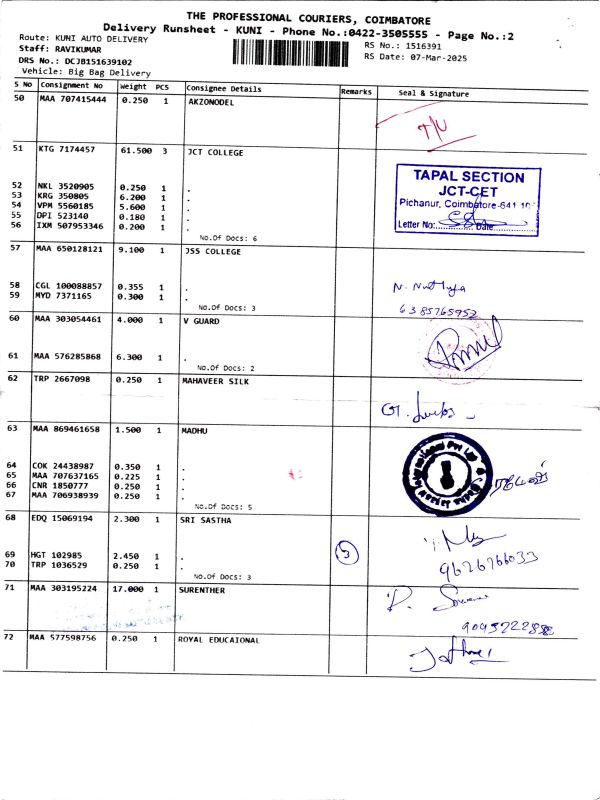 THE PROFESSIONAL COURIERS, COIMBATORE
Delivery Runsheet - KUNI - Phone No.:0422-3505555 - Page No.:2
Route: KUNI AUTO DELIVERY
RS No.: 1516391
Staff: RAVIKUMAR
RS Date: 07-Mar-2025
DRS No.: DCJB151639102
Vehicle: Big Bag Delivery
S No Consignment No Weight PCS Consignee Details Remarks Seal & Signature
50 MAA 707415444 0.250 1 AKZONODEL
51 KTG 7174457 61.500 3 JCT COLLEGE
TAPAL SECTION
JCT-CET
Pichanur, Coimbatore-641 105
Letter No: Date:
52 NKL 3520905 0.250 1 .
53 KRG 350805 6.200 1 .
54 VPM 5560185 5.600 1 .
55 DPI 523140 0.180 1 .
56 IXM 507953346 0.200 1 .
No.Of Docs: 6
57 MAA 650128121 9.100 1 JSS COLLEGE
58 CGL 100088857 0.355 1 .
59 MYD 7371165 0.300 1 .
No.Of Docs: 3
6385765952
60 MAA 303054461 4.000 1 V GUARD
61 MAA 576285868 6.300 1 .
No.Of Docs: 2
62 TRP 2667098 0.250 1 MAHAVEER SILK
63 MAA 869461658 1.500 1 MADHU
64 COK 24438987 0.350 1 .
65 MAA 707637165 0.225 1 .
66 CNR 1850777 0.250 1 .
67 MAA 706938939 0.250 1 .
No.Of Docs: 5
68 EDQ 15069194 2.300 1 SRI SASTHA
69 HGT 102985 2.450 1 . 3
70 TRP 1036529 0.250 1 .
9626766033
No.Of Docs: 3
71 MAA 303195224 17.000 1 SURENTHER
72 MAA 577598756 0.250 1 ROYAL EDUCAIONAL